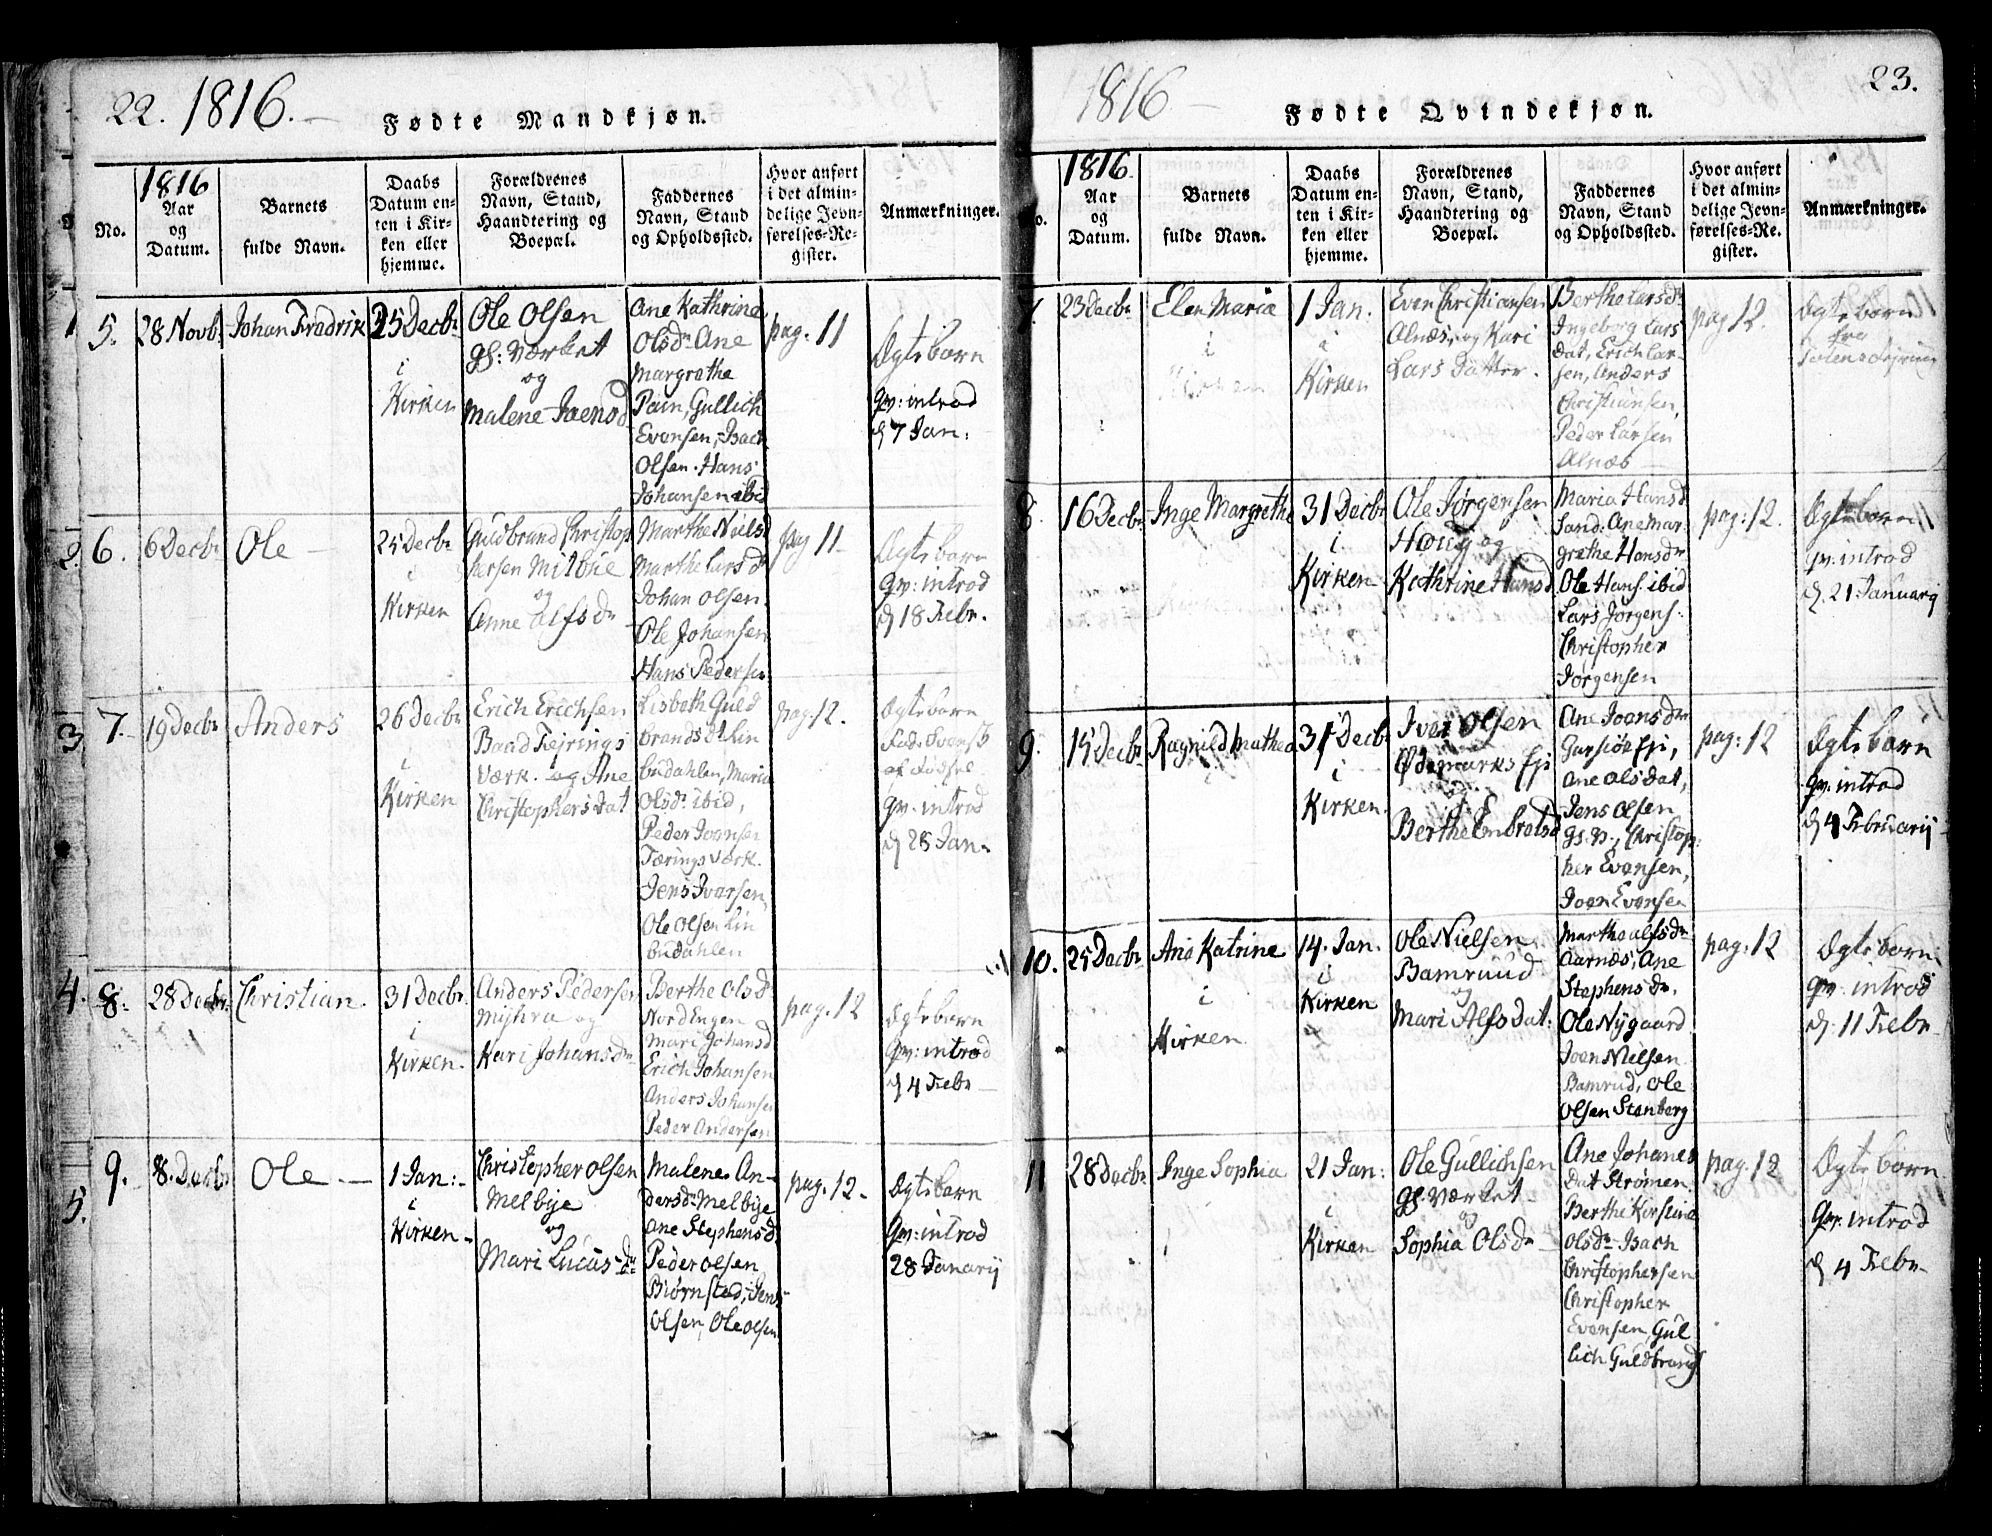 22. 1816.
Fødte Mandkjøn.
No.
1816
Aar
og
Datum.
Barnets
fulde Navn.
Daabs
Datum en-
ten i Kir-
ken eller
hjemme.
Forældrenes
Navn, Stand,
Haandtering og
Boepæl.
Faddernes
Navn, Stand
og Opholdssted.
Hvor anført
i det almin-
delige Jevn-
førelses-Re-
gister.
Anmærkninger.
1
5.
28 Novb.
Johan Fredrik
25 Decbr
i
Kirken
Ole Olsen
gs: Værket
og
Malene Joensd
Ane Kathrine
Olsdr Ane
Margrethe
Pain, Gullich
Evensen, Isach
Olsen. Hans
Johansen ibid
pag. 11
Ægte barn
qv: introd
d 7 Jan:
2.
6.
6 Decbr
Ole
25 Decbr
i
Kirken
Guldbrand Christop
hersen
og
Anne Alfsdr
Marthe Nielsd
Marthe Larsdr
Johan Olsen
Ole Johansen
Hans Pedersen
pag 11
Ægte barn
qv: introd
d 18 Febr.
3
7.
19 Decbr
Anders
26 Decbr
i
Kirken
Erich Erichsen
Baad Fejrings
Værk. og Ane
Christophersdat
Lisbeth Guld
brandsdt Lin
budahlen, Maria
Olsdr ibid,
Peder Joensen
Færings Værk.
Jens Ivarsen,
Ole Olsen Lin
budahlen
pag. 12.
Ægte barn
af Fødsel
qv: introd
d 28 Jan.
4.
8.
28 Decbr
Christian.
31 Decbr
i
Kirken.
Anders Pedersen
Myhra og
Kari Johansdr
Berthe Olsd
Nordengen
Mari Johansd
Erich Johansen
Anders Johansen
Peder Andersen
pag. 12
Ægte barn
qv: introd
d 4 Febr
5.
9.
8. Decbr
Ole
1 Jan:
i
Kirken
Christopher Olsen
Melbye
og
Mari Lucasdr
Malene An-
dersdr Melbye
Ane Stephensd.
Peder Olsen
Biørnsted, Jens
Olsen, Ole Olsen
pag. 12.
Ægte barn
qv: introd
28 Janarij
1816
23.
Fødte Qvindekjøn.
No.
1816
Aar
og
Datum.
Barnets
fulde Navn.
Daabs
Datum en-
ten i Kir-
ken eller
hjemme.
Forældrenes
Navn, Stand,
Haandtering og
Boepæl.
Faddernes
Navn, Stand
og Opholdssted.
Hvor anført
i det almin-
delige Jevn-
førelses-Re-
gister.
Anmærkninger.
7.
23 Decbr
Elen Marie
i
Kirken
1 Jan.
i
Kirken
Even Christiansen
Alnæs, og Kari
Lars Datter.
Berthe Larsdr
Ingeborg Lars
dat, Erich Lar-
sen, Anders
Christiansen,
Peder Larsen
Alnæs
pag 12.
Ægte barn
8.
16 Decbr
Inge Margrethe
31 Decbr
i
Kirken
Ole Jørgensen
Houg og
Kathrine Hansd.
Maria Hansd
Sand. Ane Mar-
grethe Hansdr
Ole Hans. ibid
Lars Jørgens:
Christopher
Jørgensen
pag: 12.
Ægte barn
qv. introd
d. 21 Januarij
9.
15 Decbr
Ragnild Mathea
i
31 Decbr
i
Kirken
Iver Olsen
Ødemarks Eji
og
Berthe Embretsd
Ane Joensdr
Garsiøe Eji,
Ane Olsdat,
Jens Olsen
gs. V., Christop-
her Evensen,
Joen Evensen
pag: 12
Ægte barn
qv: introd
d 4 Februarij
10.
25 Decbr
Ane Katrine
i
Kirken
14. Jan.
i
Kirken
Ole Nielsen
Bamruud
og
Mari Alfsdat:
Marthe Alfsdr
Aarnæs, Ane
Stephensdr,
Ole Nygaard
Joen Nielsen
Bamrud, Ole
Olsen Stenberg
pag: 12
Ægte barn
qv: introd
d: 11 Febr
11
28 Decbr
Inge Sophia
21 Jan:
i
Kirken
Ole Gullichsen
gs. Værket
og
Sophia Olsdr
Ane Johanes
dat Strømen
Berthe Kirstine
Olsdr Isach
Christophersen
Christopher
Evensen, Gul
lich Guldbrands
pag. 12
Ægte barn
qv. introd
d 4 Febr